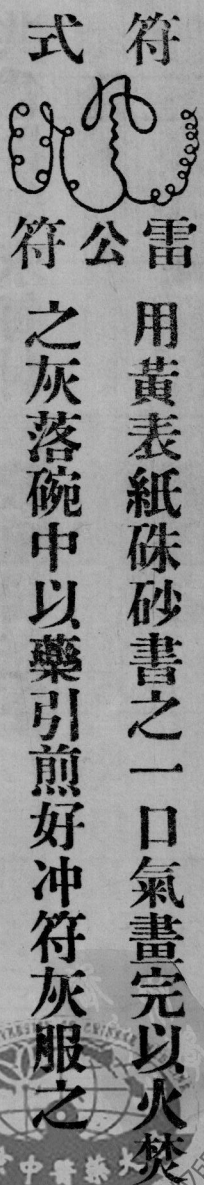 符式
雷公符
用黃表紙硃砂書之一口氣畫完以火焚
之灰落碗中以藥引煎好冲符灰服之
中醫藥大